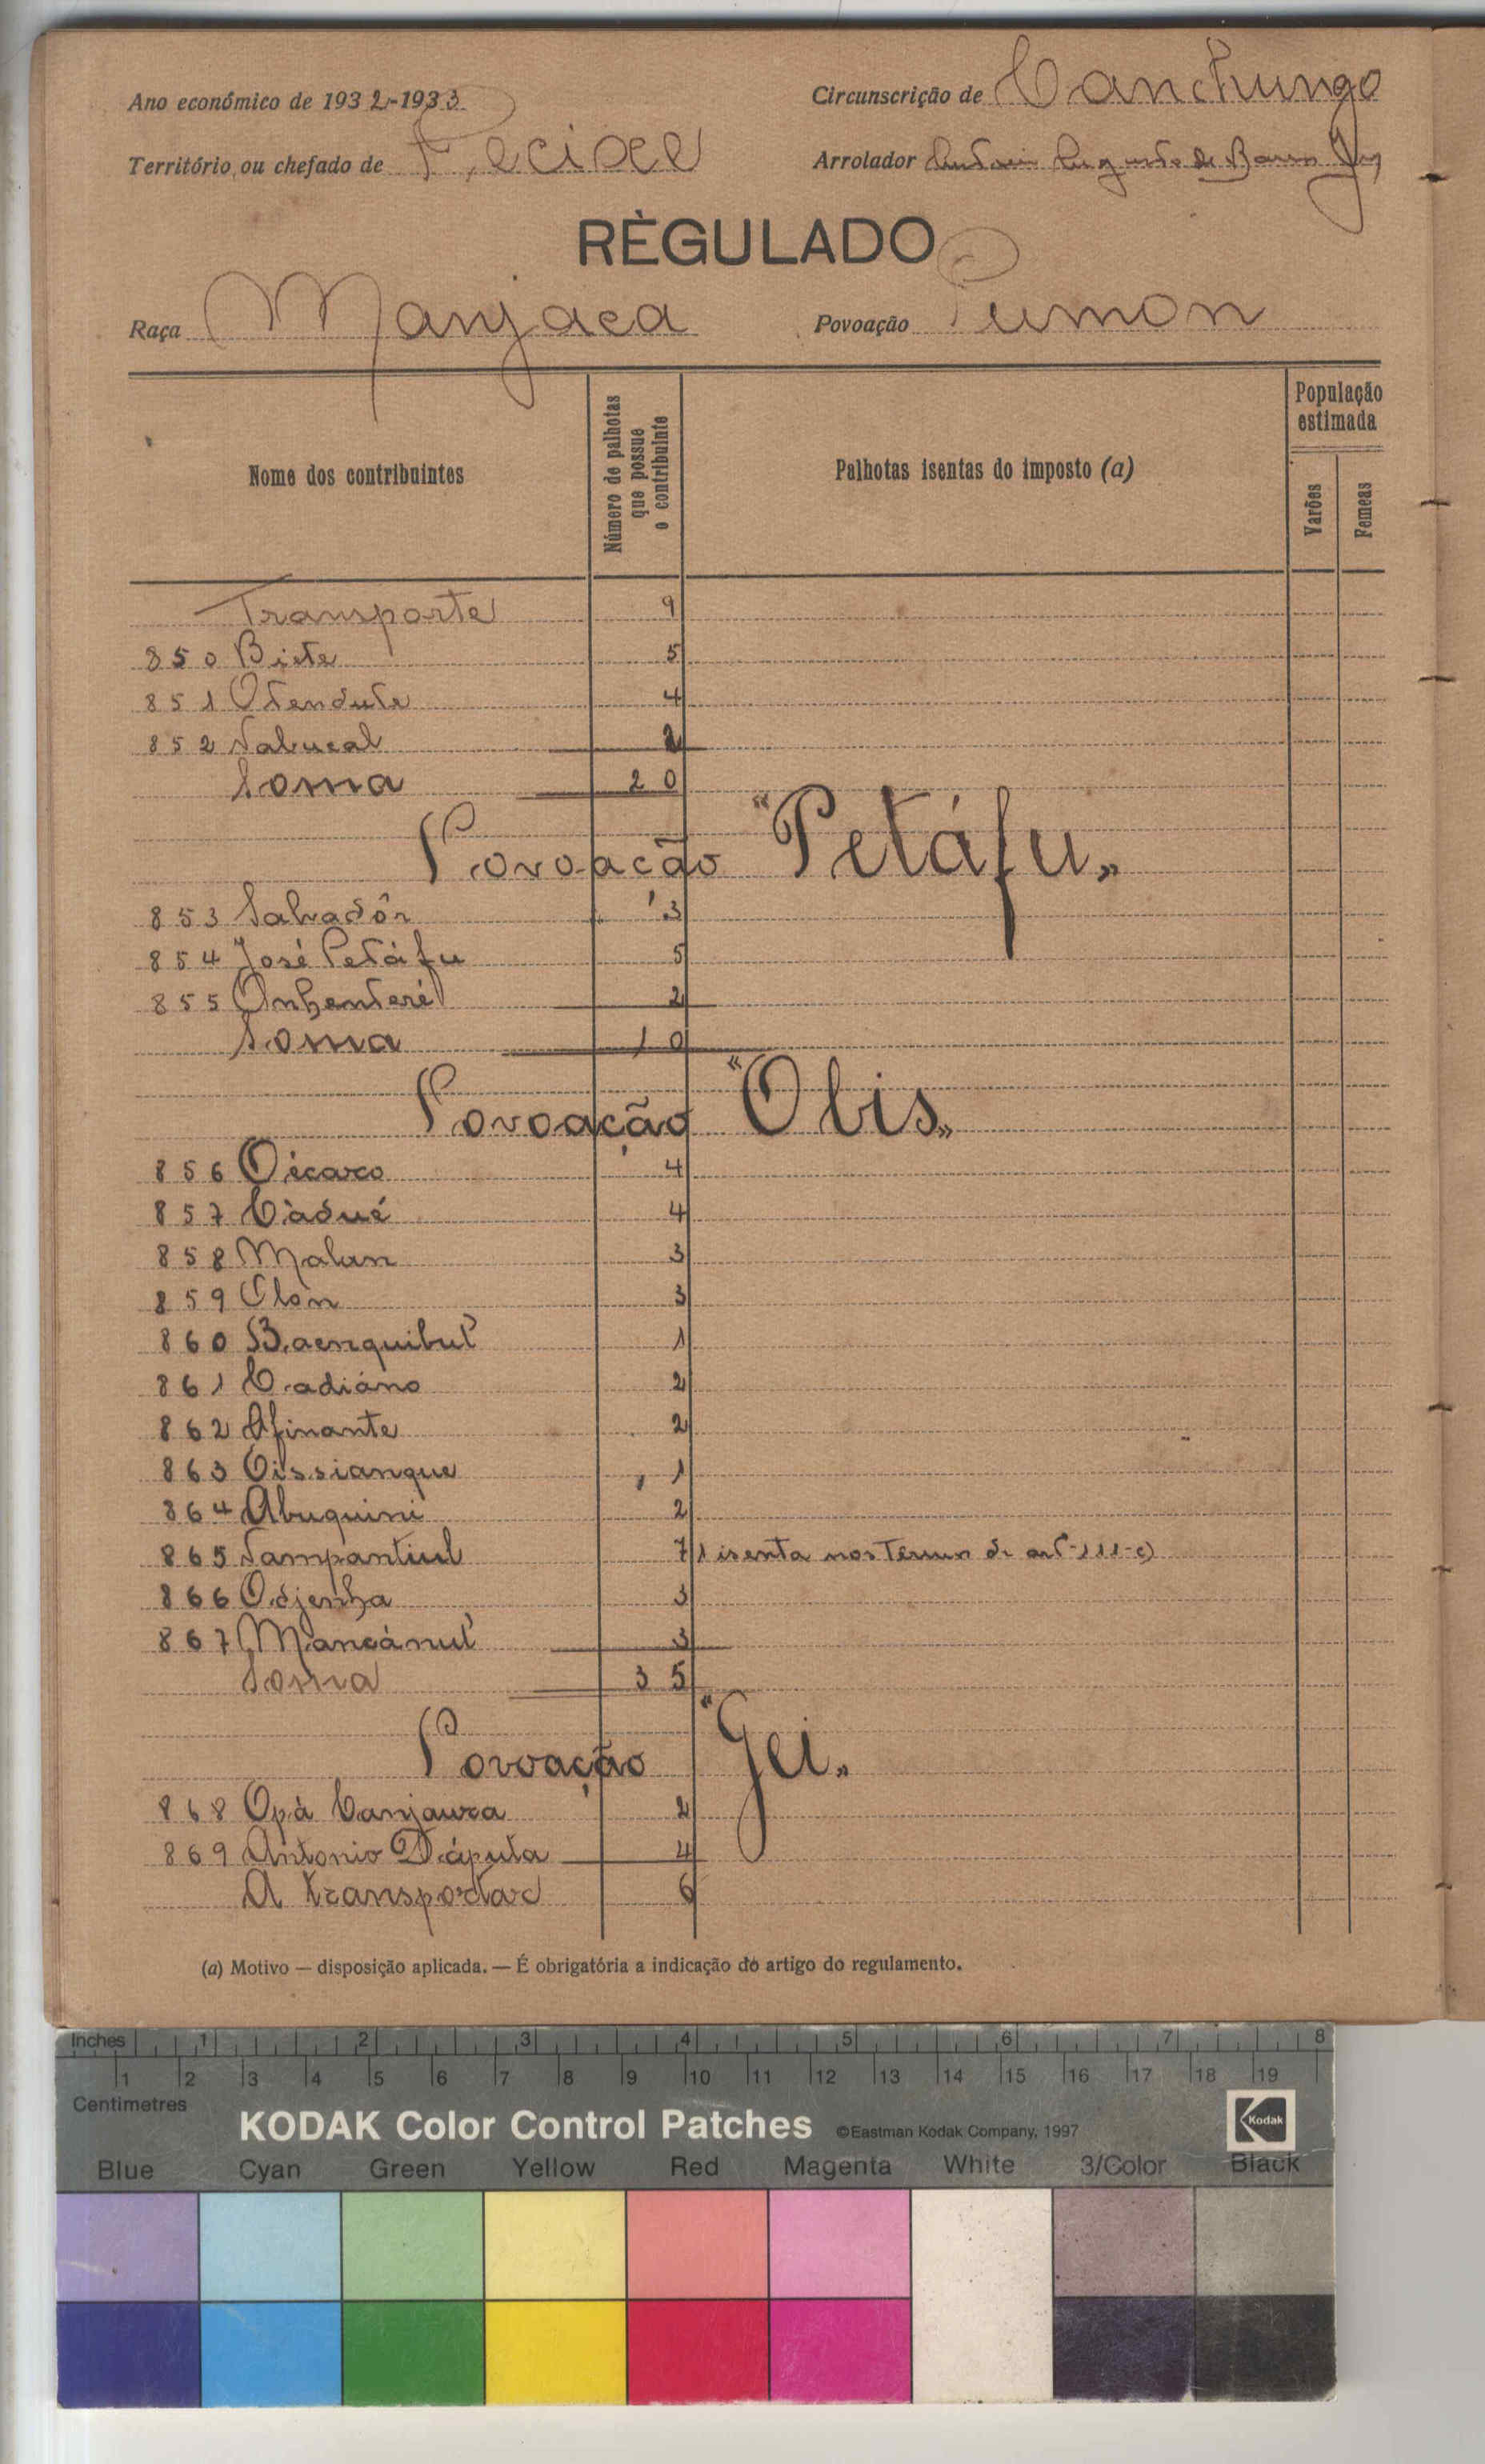 Ano económico de 1932-1933
Circunscrição de Canchungo
Território ou chefado de Pecixe
Arrolador Augusto de Barros
RÈGULADO
Raça Manjaca
Povoação Pumon
Nome dos contribuintes
Número de palhotas que possue o contribuinte
Palhotas isentas do imposto (a)
População estimada
Varões
Femeas
Transporte 9
850 Biete 5
851 Otendute 4
852 Nabucal 2
Soma 20
Povoação "Petáfu"
853 Salvadôr 3
854 José Petáfu 5
855 Onhenteré 2
Soma 10
Povoação "Obis"
856 Oécaco 4
857 Càdué 4
858 Malan 3
859 Clòn 3
860 Baenquibul 1
861 Cadiáno 2
862 Afinante 2
863 Oissianque 1
864 Abuquini 2
865 Nampantiul 7 1 isenta nos Têrmos do art-111-c)
866 Odjenha 3
867 Mancánul 3
Soma 35
Povoação "Gei"
868 Opà Canjaura 2
869 Antonio Dápula 4
A transportar 6
(a) Motivo — disposição aplicada. — É obrigatória a indicação do artigo do regulamento.
Inches 1 2 3 4 5 6 7 8
1 2 3 4 5 6 7 8 9 10 11 12 13 14 15 16 17 18 19
Centimetres
KODAK Color Control Patches ©Eastman Kodak Company, 1997 Kodak
Blue Cyan Green Yellow Red Magenta White 3/Color Black